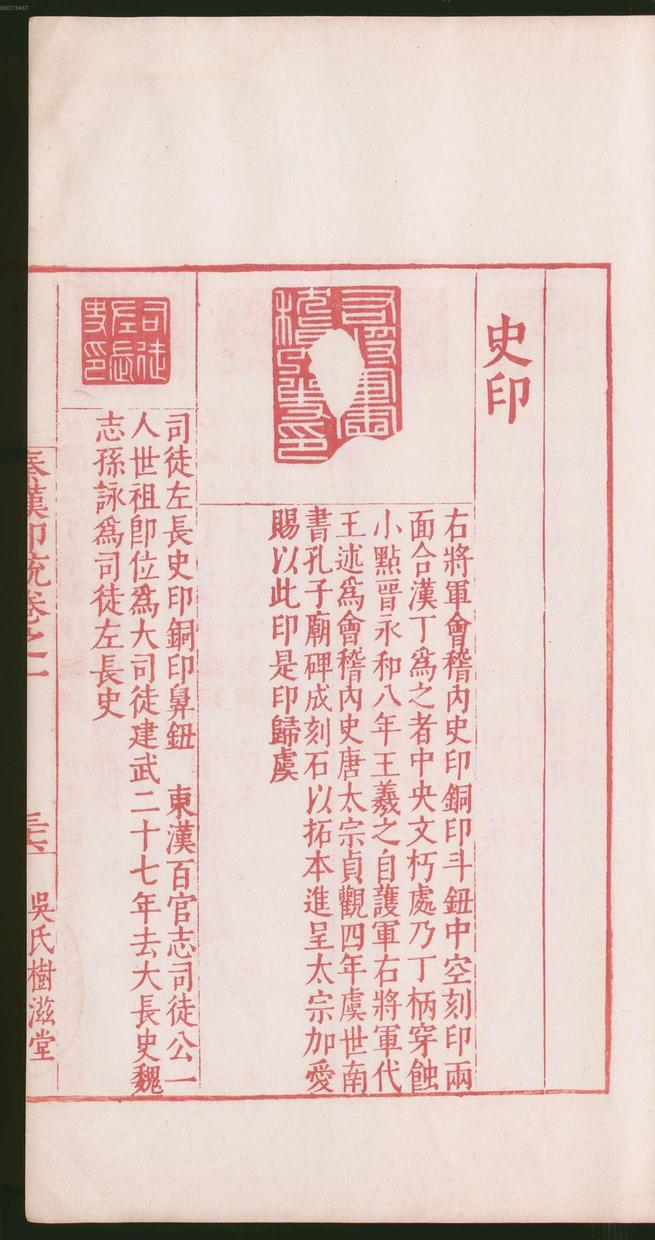 00073467
史印
右將軍會稽內史印銅印斗鈕中空刻印兩
面合漢丁為之者中央文朽處乃丁柄穿蝕
小點晉永和八年王羲之自護軍右將軍代
王述為會稽內史唐太宗貞觀四年虞世南
書孔子廟碑成刻石以拓本進呈太宗加愛
賜以此印是印歸虞
司徒
左長
史印
司徒左長史印銅印鼻鈕　東漢百官志司徒公一
人世祖卽位為大司徒建武二十七年去大長史魏
志孫詠為司徒左長史
秦漢印統卷之二
吳氏樹滋堂